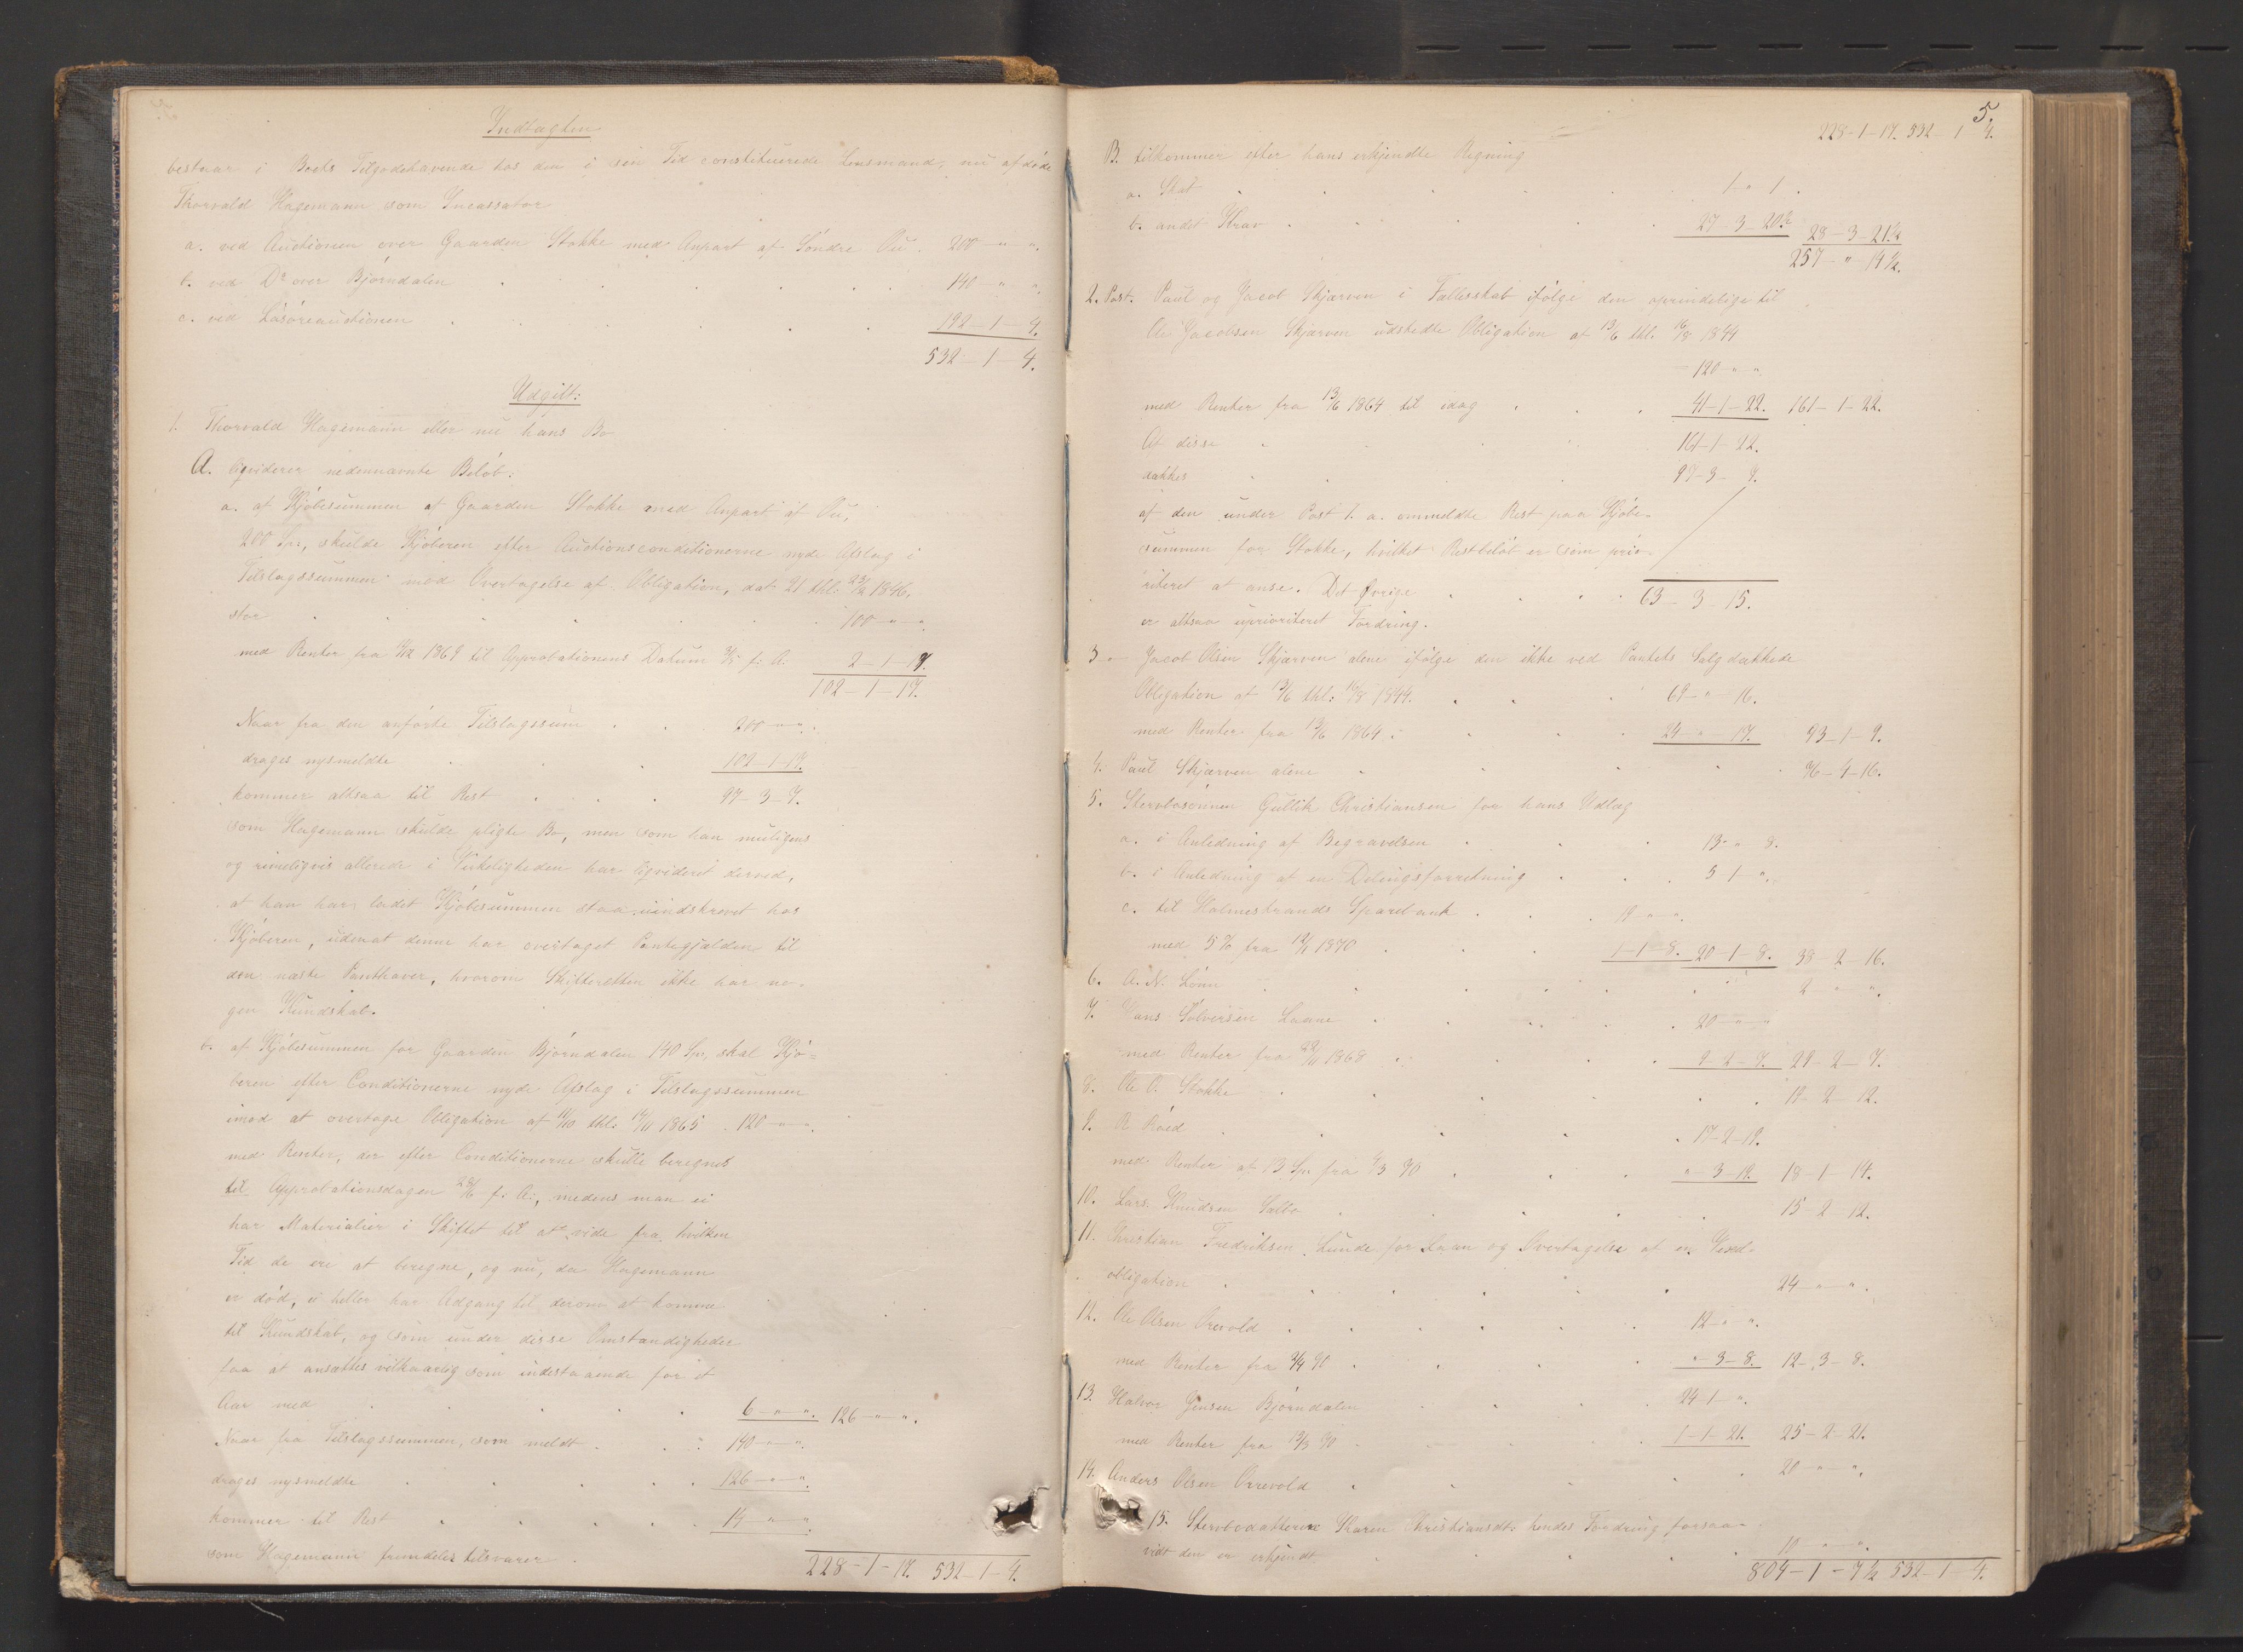 Indtægten
bestaar i Boets Tilgodehavende hos den i sin Tid constituerede Lensmand, nu afdøde
Thorvald Hagemann som Incassator
a. ved Auctionen over Gaarden Stokke med Anpart af Søndre Ou. 200 - " - ".
b. ved Do over Bjørndalen 140 - " - ".
c. ved Løsøreauctionen 192 - 1 - 4.
532 - 1 - 4.
Udgift:
1. Thorvald Hagemann eller nu hans Bo
A. liqviderer nedennævnte Beløb:
a. af Kjøbesummen af Gaarden Stokke med Anpart af Ou,
200 Spd, skulde Kjøberen efter Auctionsconditionerne nyde Afslag i
Tilslagssummen mod Overtagelse af Obligation, dat. 21 thl. 23/12 1846,
stor 100 - " - ".
med Renter fra 1869 til Approbationens Datum f. A. 2 - 1 - 17.
102 - 1 - 17.
Naar fra den anførte Tilslagssum 200 - " - ".
drages nysmeldte 102 - 1 - 17.
kommer altsaa til Rest 97 - 3 - 7.
som Hagemann skulde pligte Bo, men som han muligens
og rimeligvis allerede i Virkeligheden har liqvideret derved,
at han har ladet Kjøbesummen staa uindkrævet hos
Kjøberen, uden at denne har overtaget Pantegjælden til
den næste Panthaver, hvorom Skifteretten ikke har no-
gen Kundskab.
b. af Kjøbesummen for Gaarden Bjørndalen 140 Spd, skal Kjø-
beren efter Conditionerne nyde Afslag i Tilslagssummen
imod at overtage Obligation af 11/10 thl. 14/11 1865 120 - " - ".
med Renter, der efter Conditionerne skulle beregnes
til Approbationsdagen 28/6 f. A., medens man ei
har Materialier i Skiftet til at vide fra hvilken
Tid de ere at beregne, og nu, da Hagemann
er død, ei heller har Adgang til derom at komme
til Kundskab, og som under disse Omstændigheder
faa at ansættes vilkaarlig som indestaaende for et
Aar med 6 - " - ". 126 - " - ".
Naar fra Tilslagssummen, som meldt 140 - " - ".
drages nysmeldte 126 - " - ".
kommer til Rest 14 - " - ".
som Hagemann fremdeles tilsvarer
228 - 1 - 17. 532 - 1 - 4.
5.
228 - 1 - 17. 532 - 1 4.
B. tilkommer efter hans erkjendte Regning
a. Skat 1 " 1.
b. andet Krav 27 - 3 - 20½ 28 - 3 - 21½
257 - " - 14½.
2. Post. Paul og Jacob Skjærven i Fællesskab ifølge den oprindelige til
Ole Jacobsen Skjærven udstedte Obligation af 13/6 thl. 16/8 1844
120 " "
med Renter fra 13/6 1864 til idag 41 - 1 - 22. 161 - 1 - 22.
Af disse 161 - 1 - 22.
dækkes 97 - 3 - 7.
af den under Post 1. a. ommeldte Rest paa Kjøbe-
summen for Stokke, hvilket Restbeløb er som prio-
riteret at anse. Det Øvrige 63 - 3 - 15.
er altsaa uprioriteret Fordring.
3 - " Jacob Olsen Skjærven alene ifølge den ikke ved Pantets Salg dækkede
Obligation af 13/6 thl. 16/8 1844. 69 - " - 16.
med Renter fra 13/6 1864 24 - " - 17. 93 - 1 - 9.
4. Paul Skjærven alene 76 - 4 - 16.
5. Stervbosønnen Gullik Christiansen for hans Udlæg
a. i Anledning af Begravelsen 13 " 8.
b. i Anledning af en Delingsforretning 5 1 - ".
c. til Holmestrands Sparebank 19 - " - ".
med 5 % fra 1870 1 - 1 - 8. 20 - 1 - 8. 38 - 2 - 16.
6. A. N. Lønn 2 " ".
7. Hans Sølversen Laane 20 - " - "
med Renter fra 22/11 1868 2 - 2 - 7. 22 - 2 - 7.
8. Ole A. Stokke 19 - 2 - 12.
9. R Røed 17 - 2 - 19.
med Renter af 13 Spd fra 70 " - 3 - 19. 18 - 1 - 14.
10. Lars Knudsen Salbo 15 - 2 - 12.
11. Christian Fredriksen Lunde for Laan og Overtagelse af en Gjæld-
obligation 24 - " - ".
12. Ole Olsen Orevold 12 - " - ".
med Renter fra 70 " - 3 - 8. 12 - 3 - 8.
13. Halvor Jensen Bjørndalen 24 1 - ".
med Renter fra 13/3 70 1 - 1 - 21. 25 - 2 - 21.
14. Anders Olsen Orrevold 20 - " - ".
15. Stervbodatteren Karen Christiansdtr. hendes Fordring forsaa-
vidt den er erkjendt 10 " ".
804 - 1 - 7½ 532 - 1 - 4.